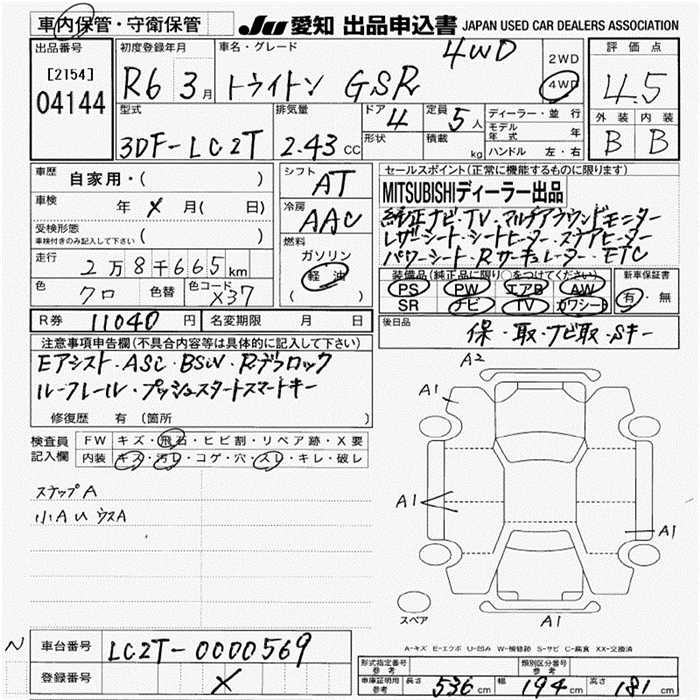 車内保管・守衛保管
JU 愛知 出品申込書 JAPAN USED CAR DEALERS ASSOCIATION
出品番号
[2154]
04144
初度登録年月
R6 3月
車名・グレード
4WD
トライトン GSR
2WD
4WD
評価点
4.5
外装 内装
B B
型式
3DF-LC2T
排気量
2.43 CC
ドア
4
定員
5人
形状
積載
kg
ディーラー・並行
モデル年式 年
ハンドル 左・右
車歴 自家用・( )
車検 年 X 月( 日)
受検形態
車検付きのみ記入して下さい ( )
走行 2万8千665km
色 クロ 色替 色コード X37
シフト AT
冷房 AAC
燃料
ガソリン
軽油
( )
セールスポイント(正常に機能するものに限ります)
MITSUBISHIディーラー出品
純正ナビ・TV・マルチアラウンドモニター
レザーシート・シートヒーター・ステアヒーター
パワーシート・Rサーキュレーター・ETC
装備品(純正品に限り○をつけてください)
PS PW エアB AW
SR ナビ TV カワシート
新車保証書
有・無
R券 11040円 名変期限 月 日
後日品
保・取・ナビ取・Sキー
注意事項申告欄(不具合内容等は具体的に記入して下さい)
Eアシスト・ASC・BSW・Rデフロック
ルーフレール・プッシュスタートスマートキー
修復歴 有 (箇所 )
検査員記入欄
FW キズ・飛石・ヒビ割・リペア跡・X要
内装 キズ・汚レ・コゲ・穴・スレ・キレ・破レ
ステップA
小AUウスA
A2
A1
A1
A1
A1
スペア
A-キズ E-エクボ U-凹み W-補修跡 S-サビ C-腐食 XX-交換済
N
車台番号 LC2T-0000569
登録番号 X
形式指定番号
参考
類別区分番号
参考
車庫証明用
参考
長さ 536cm 幅 194cm 高さ 181cm